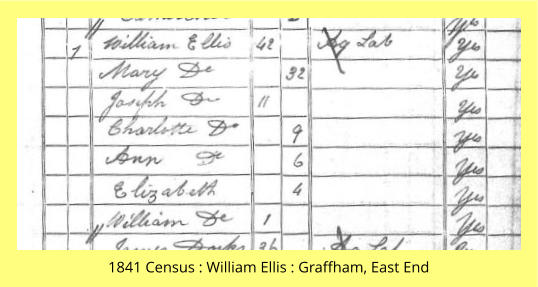 1 William Ellis 42 Ag Lab Yes
Mary Do 32 Yes
Joseph Do 11 Yes
Charlotte Do 9 Yes
Ann Do 6 Yes
Elizabeth 4 Yes
William Do 1 Yes
James 36 Ag Lab
1841 Census : William Ellis : Graffham, East End